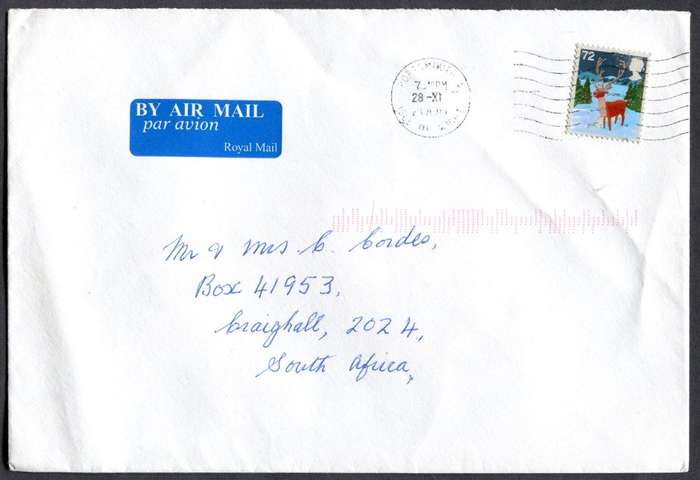 72
PORTSMOUTH &
28-XI
BY AIR MAIL
par avion
Royal Mail
Mr & Mrs C. Cordes,
Box 41953,
Craighall, 2024,
South Africa,